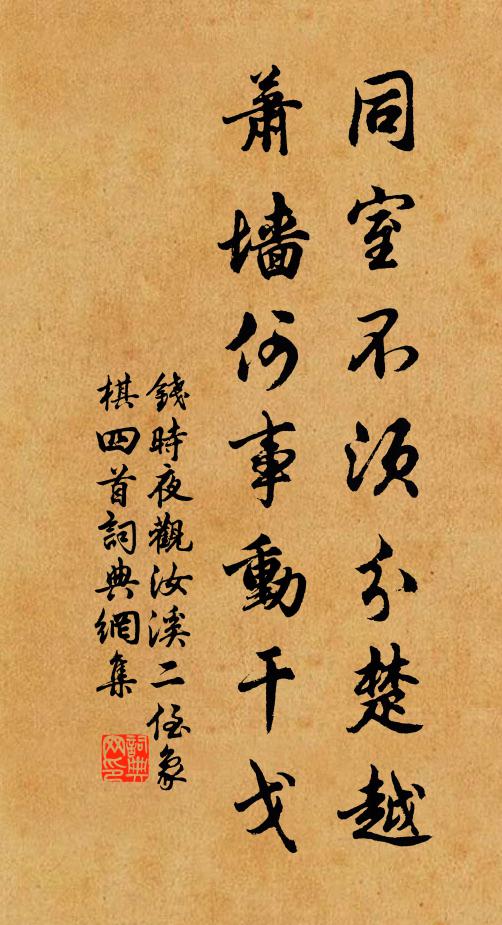 同室不须分楚越
萧墙何事動干戈
錢時夜觀汝溪二侄象
棋四首詞典網集
詞典
网印